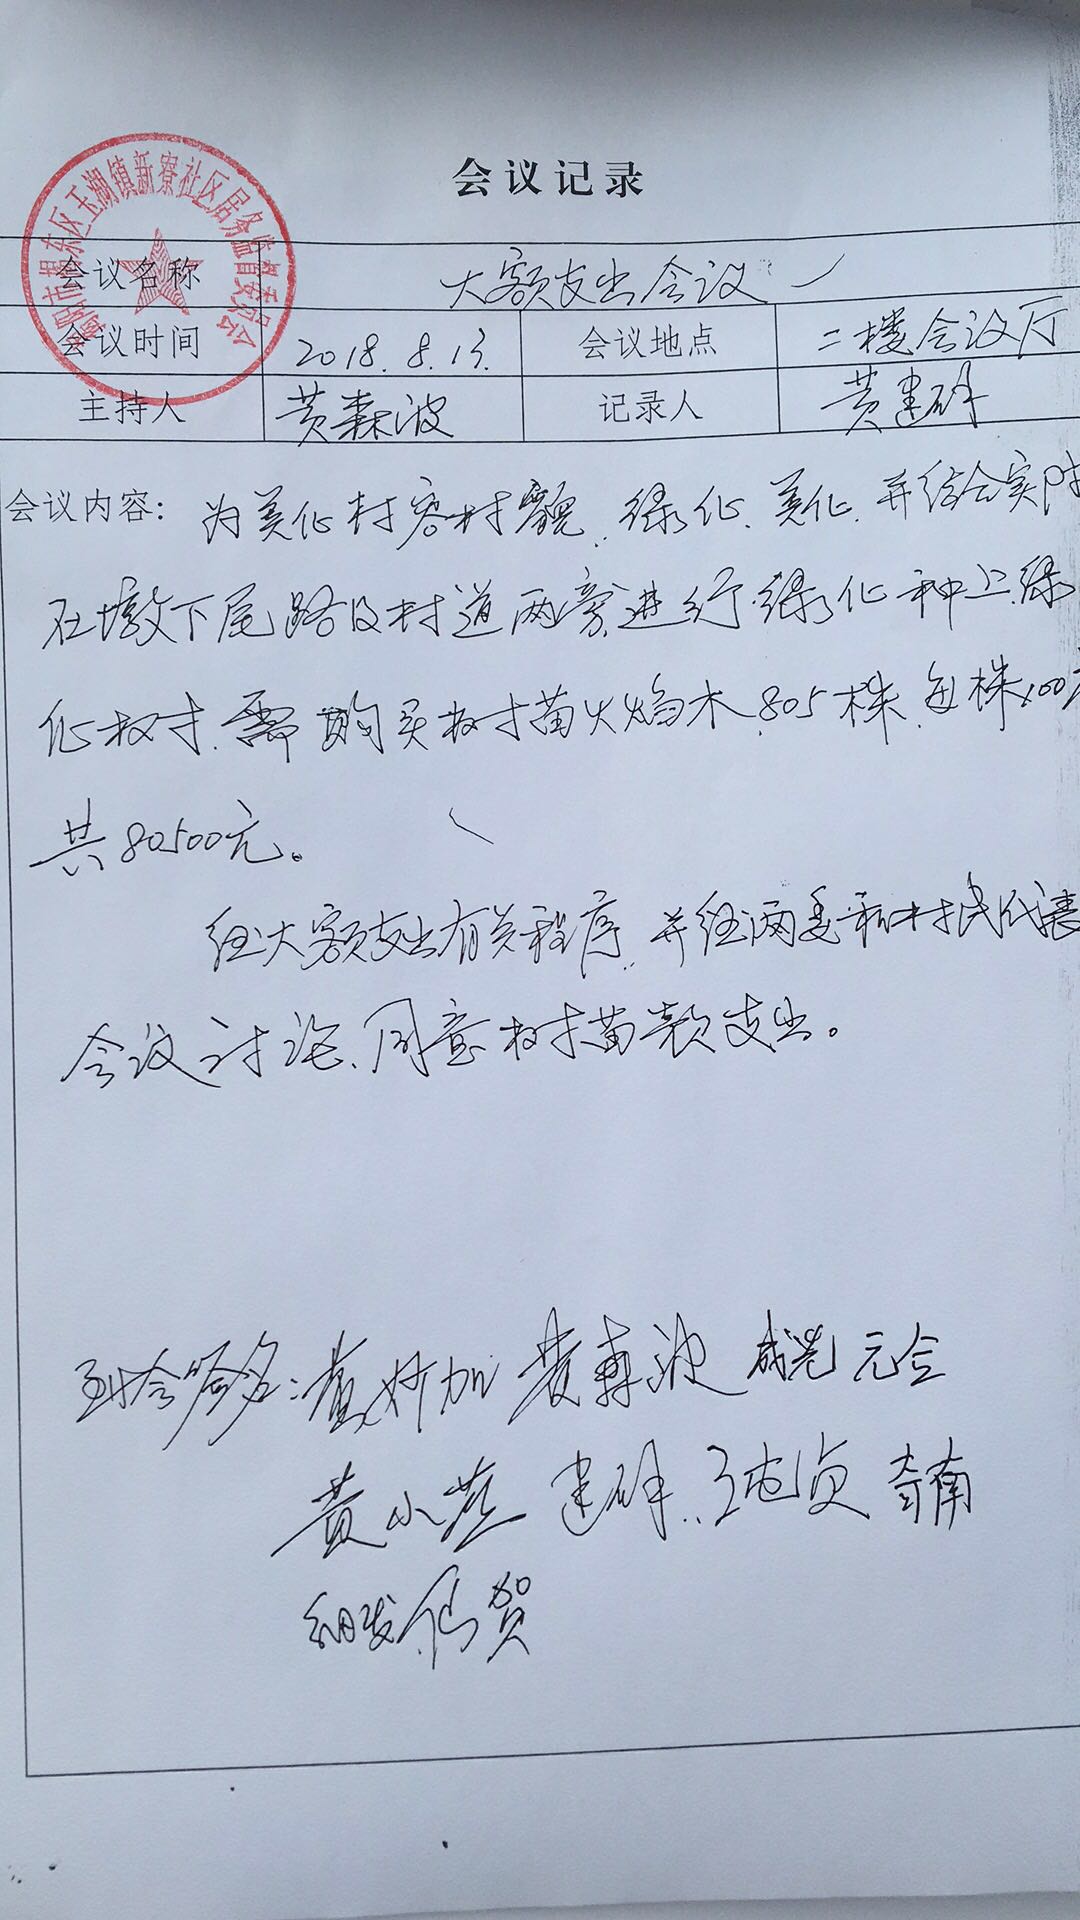 会议记录
揭阳市揭东区玉湖镇新寮社区居务监督委员会
会议名称 大额支出会议
会议时间 2018.8.13. 会议地点 二楼会议厅
主持人 黄森波 记录人 黄建群
会议内容: 为美化村容村貌、绿化、美化、并结合实际
在墩下尾路及村道两旁进行绿化种上绿
化树、需购买树苗火焰木805株、每株100元
共80500元。
经大额支出有关程序、并经两委和村民代表
会议讨论、同意树苗款支出。
到会签名: 黄 加 黄 波 元
黄小燕 建群 贞 南
细发 仙贺